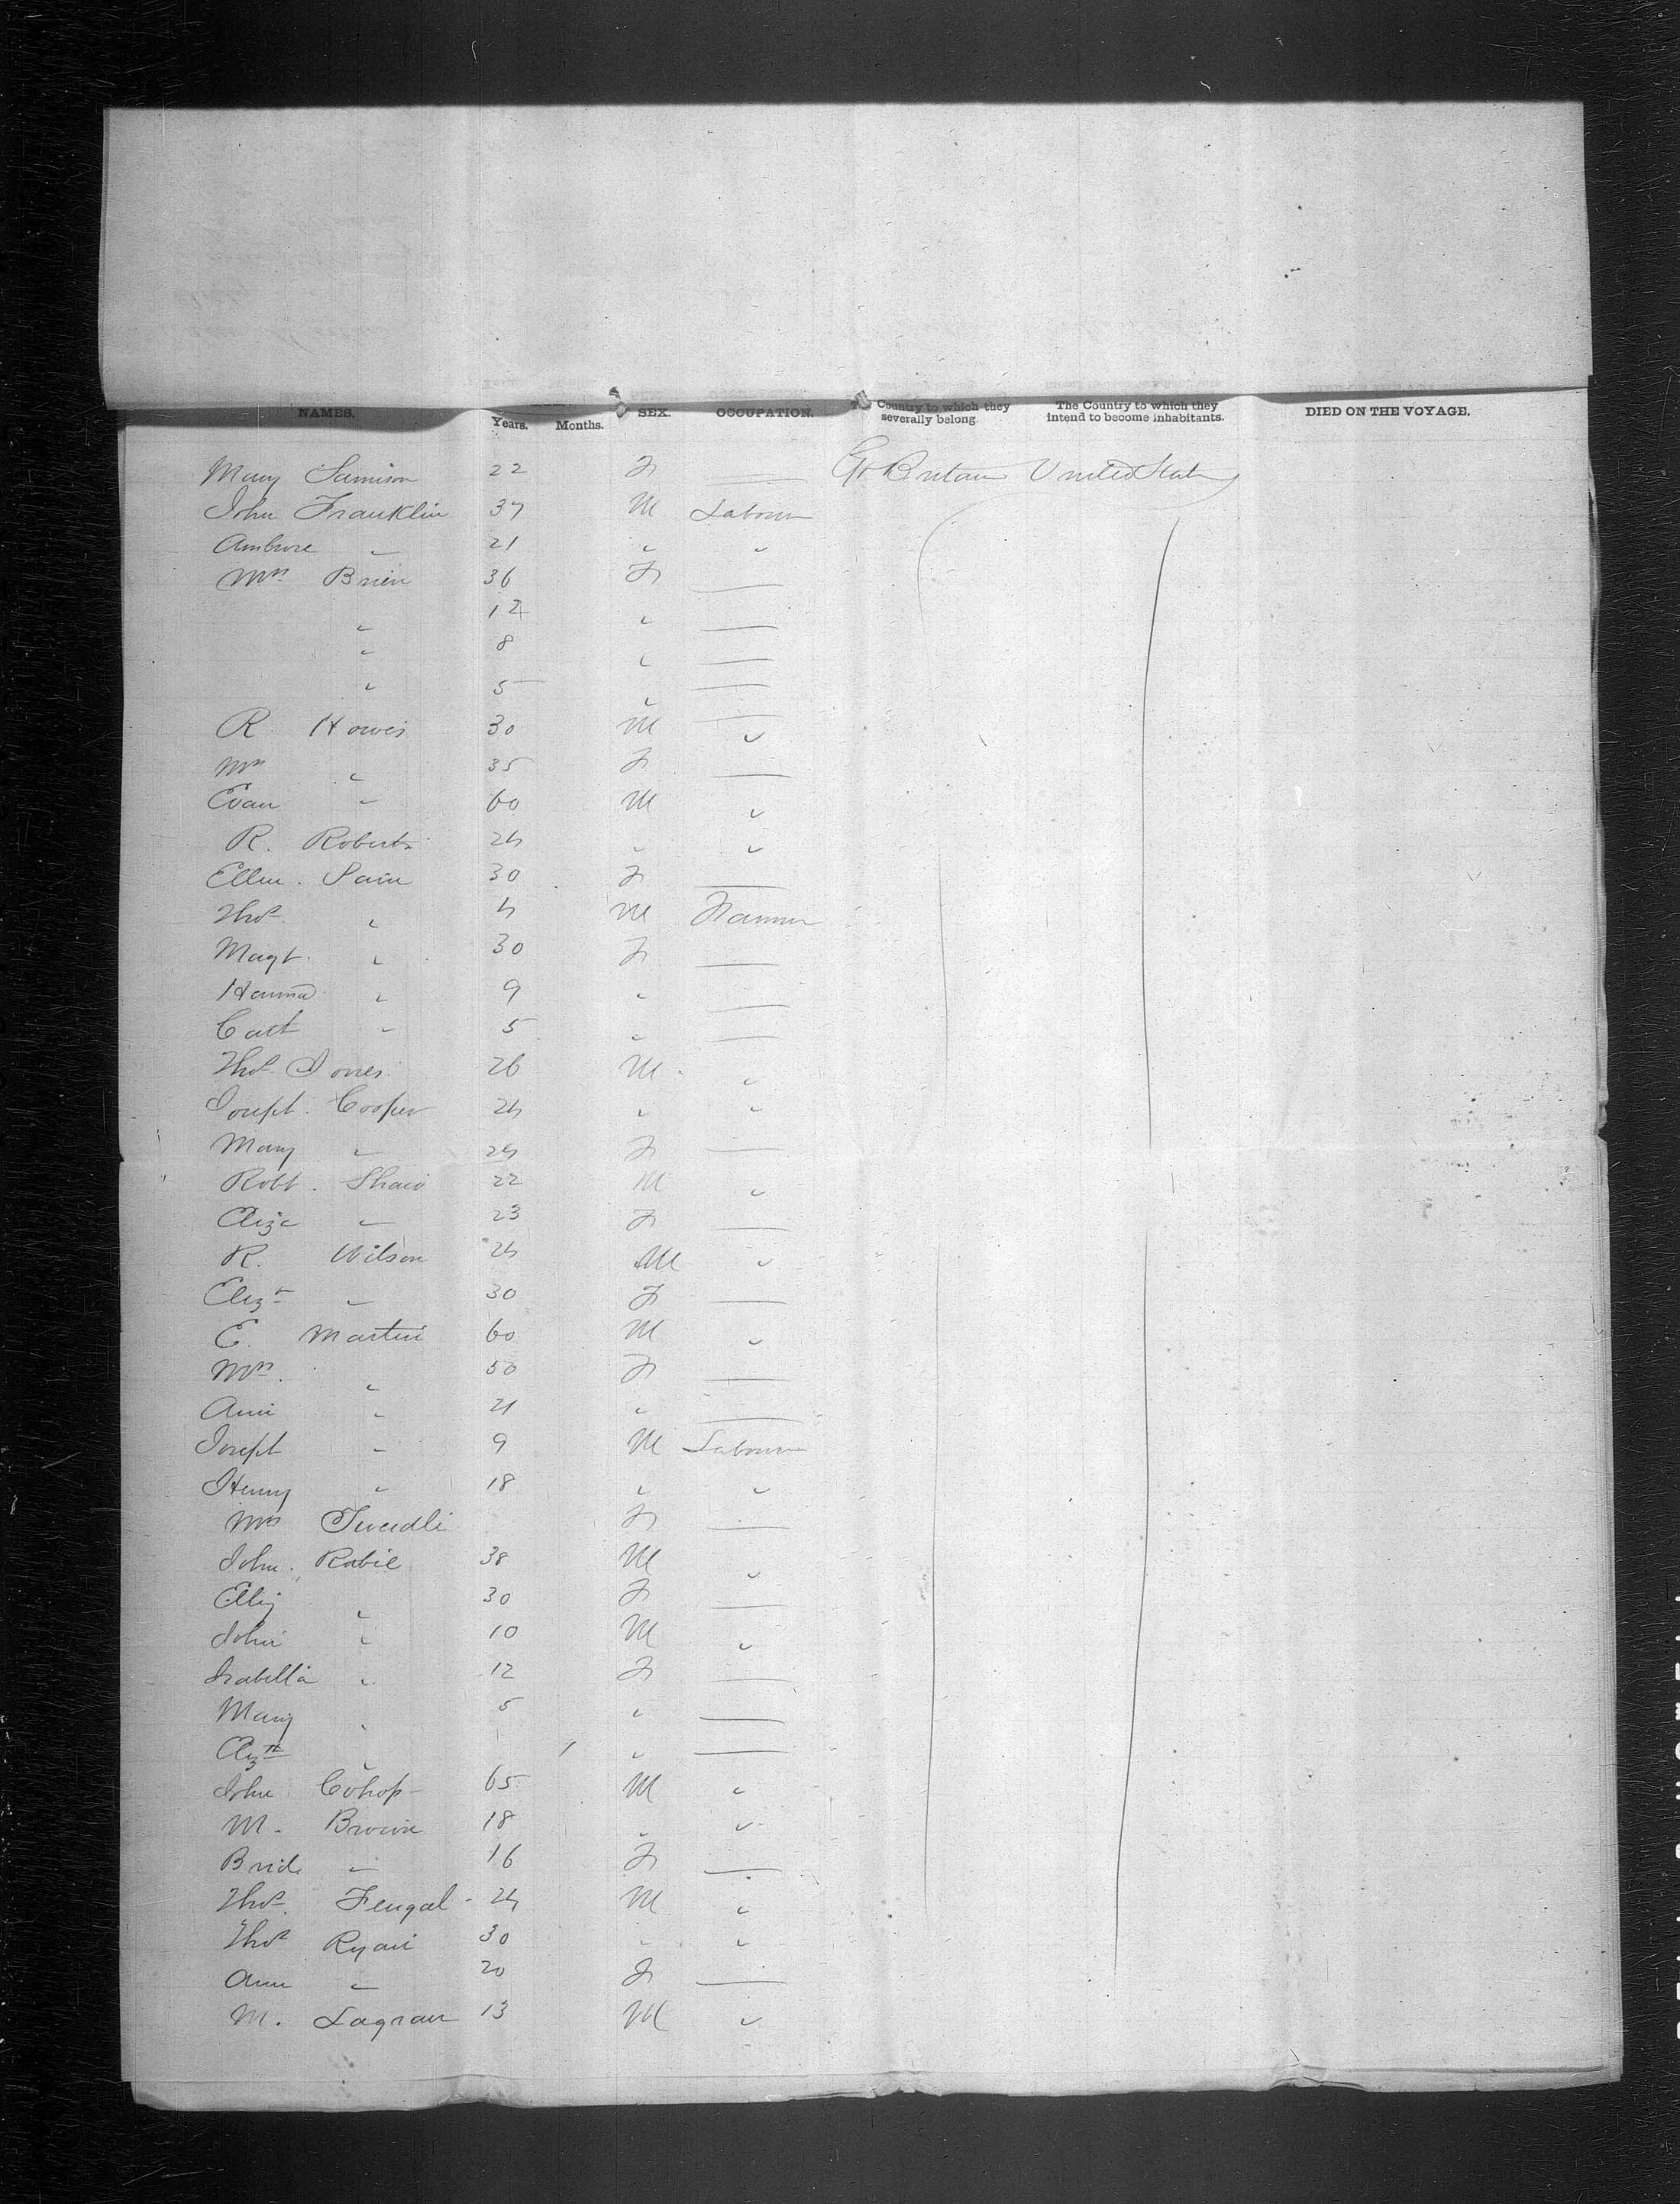 NAMES. Years. Months. SEX. OCCUPATION. Country to which they severally belong. The Country to which they intend to become inhabitants. DIED ON THE VOYAGE.
Mary Samison 22 F — Gt Britain United States
John Franklin 37 M Labourer
Ambrose " 21 " "
Mrs Brien 36 F —
" 12 " —
" 8 " —
" 5 " —
R Howes 30 M "
Mrs " 35 F —
Evan " 60 M "
R. Roberts 24 " "
Ellen. Sain 30 F —
Thos " 4 M Farmer
Magt. " 30 F —
Hanna " 9 " —
Cath " 5 " —
Thos Jones 26 M "
Joseph. Cooper 24 " "
Mary " 24 F —
Robt. Shaw 22 M "
Eliza " 23 F —
R. Wilson 24 M "
Eliz " 30 F —
E. Martin 60 M "
Mrs. " 50 F —
Ann " 21 " —
Joseph " 9 M Labourer
Henry " 18 " "
Mrs Tweedli F —
John. Rabie 38 M "
Eliz " 30 F —
John " 10 M "
Isabella " 12 F —
Mary " 5 " —
Elizth " 1 " —
John Cohop 65 M "
M. Brown 18 " "
Brid. " 16 F —
Thos. Fengal 24 M "
Thos Ryan 30 " "
Ann " 20 F —
M. Lagran 13 M "